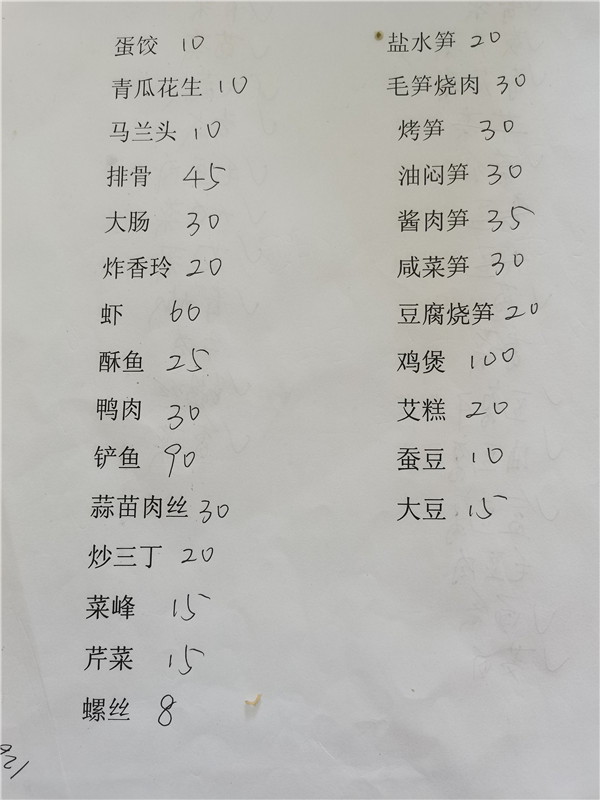 蛋饺 10
青瓜花生 10
马兰头 10
排骨 45
大肠 30
炸香玲 20
虾 60
酥鱼 25
鸭肉 30
铲鱼 90
蒜苗肉丝 30
炒三丁 20
菜峰 15
芹菜 15
螺丝 8
盐水笋 20
毛笋烧肉 30
烤笋 30
油闷笋 30
酱肉笋 35
咸菜笋 30
豆腐烧笋 20
鸡煲 100
艾糕 20
蚕豆 10
大豆 15